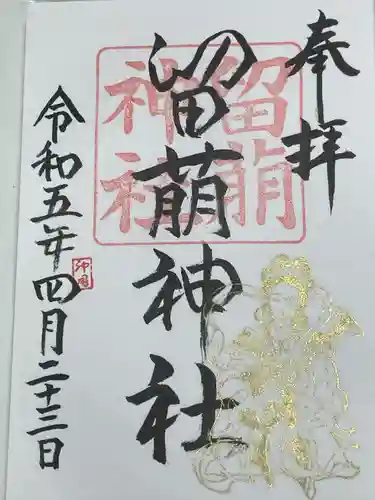 奉拝
留萠神社
留萠
神社
令和五年四月二十三日